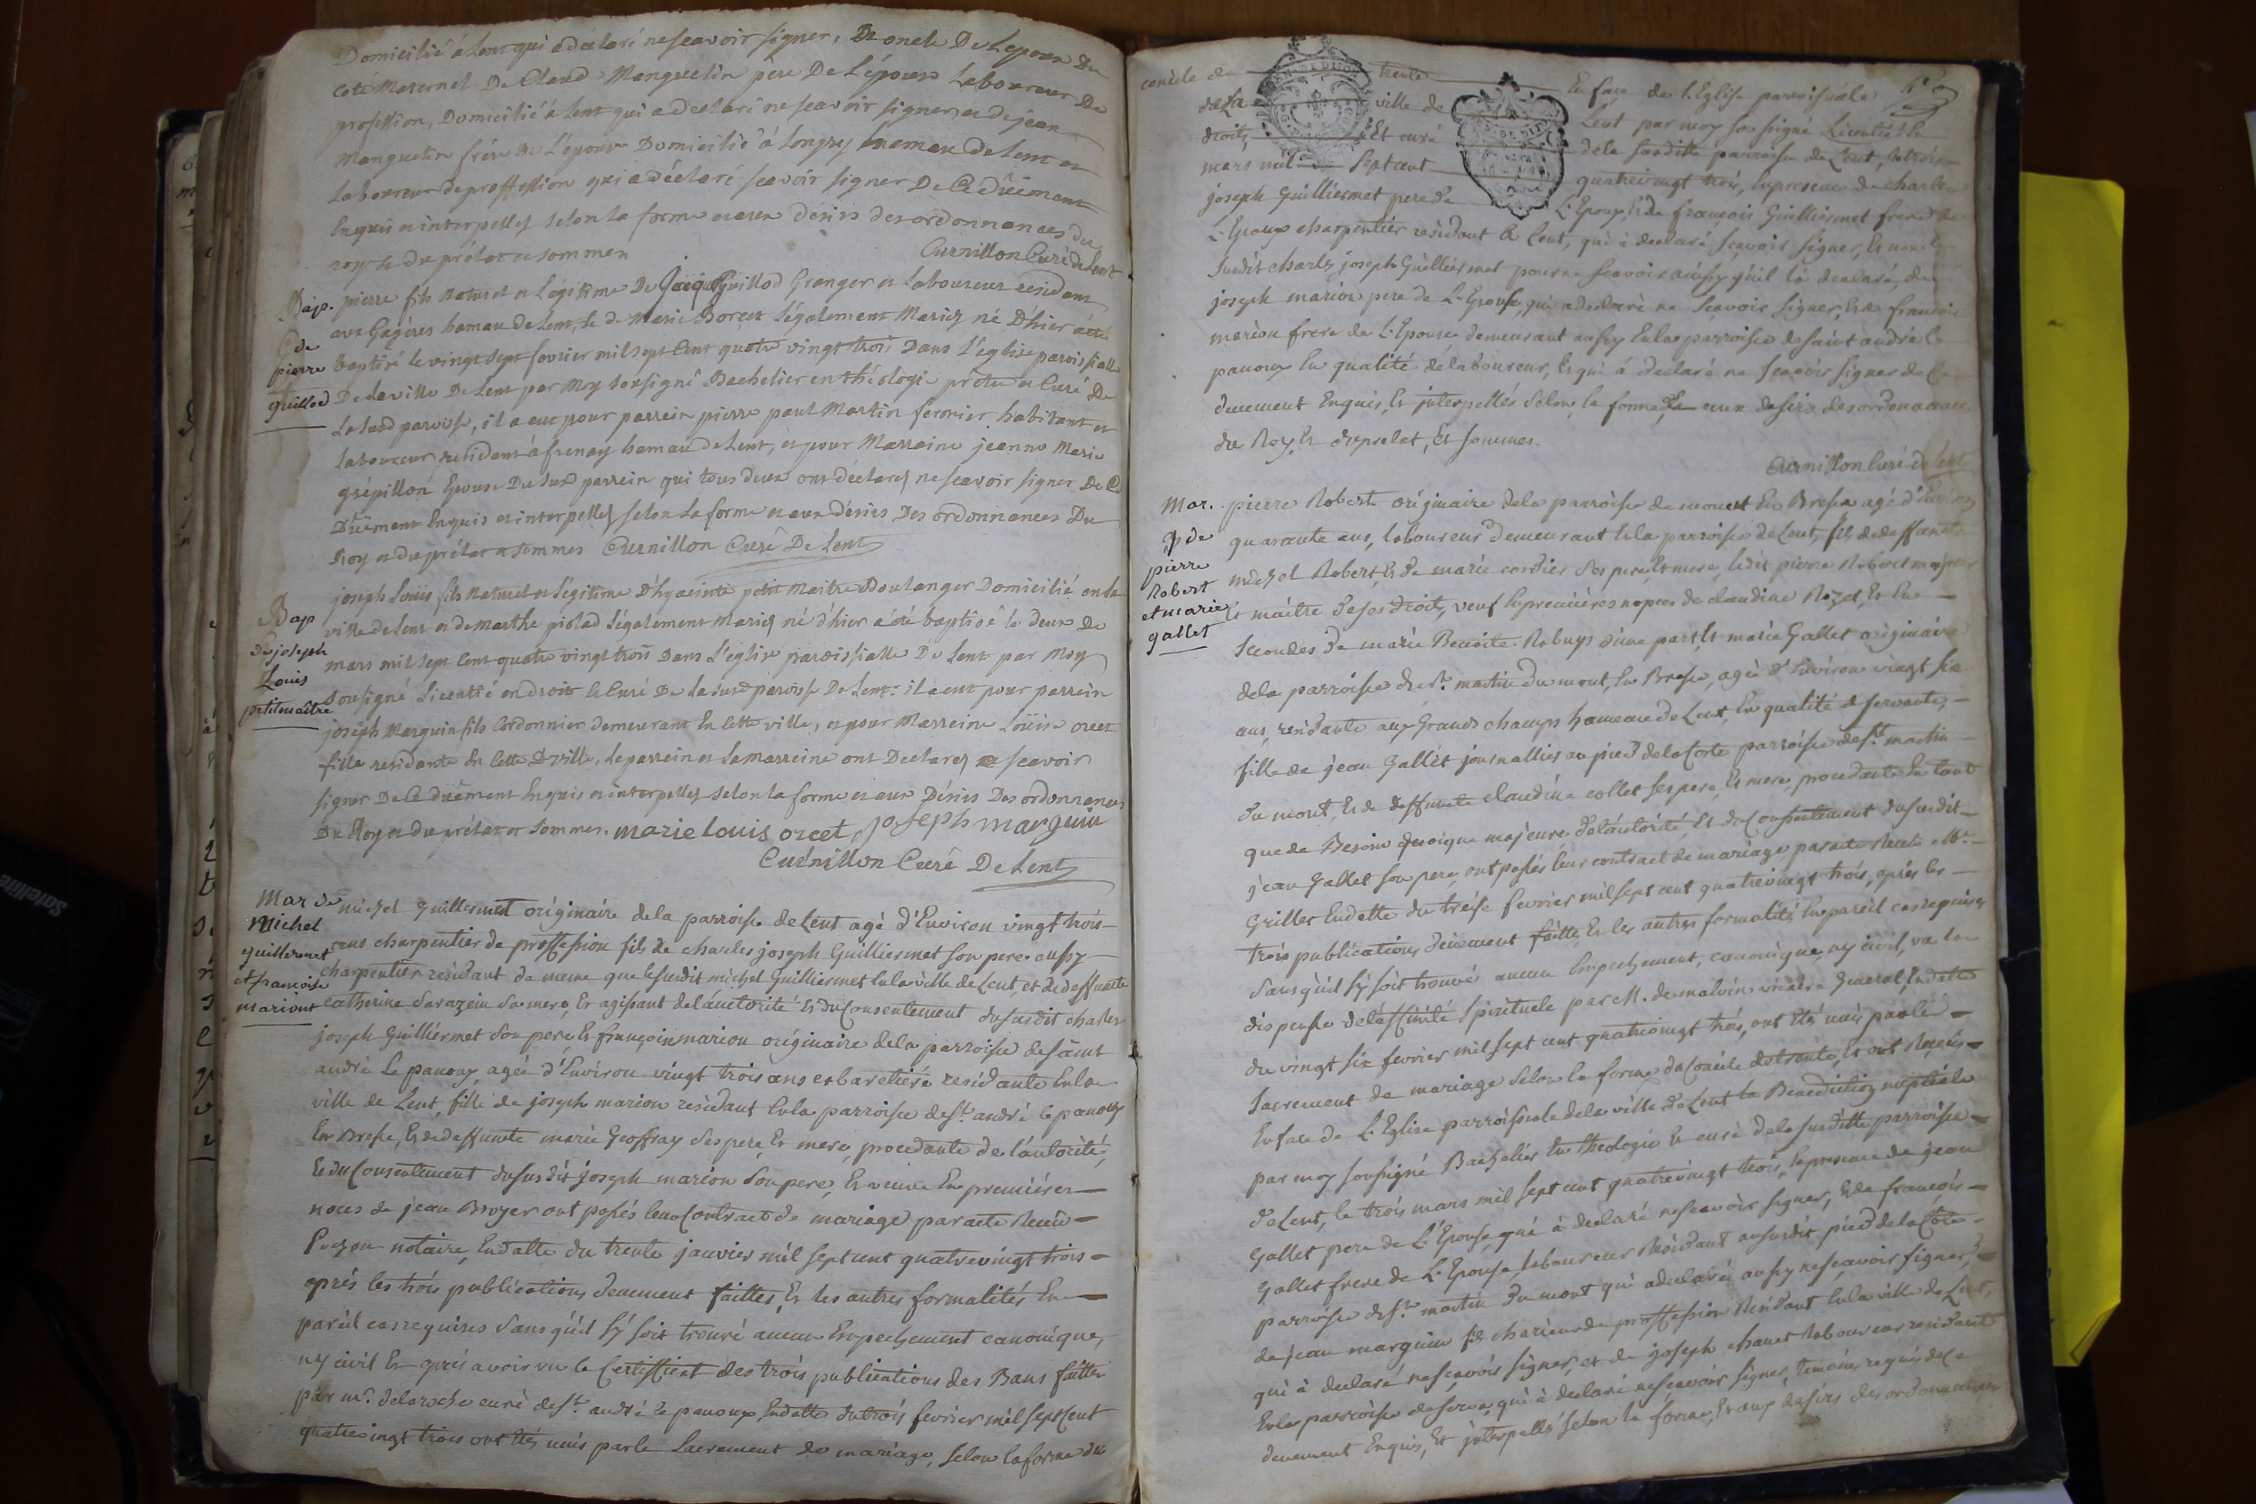 Domicilié à Lent qui a déclaré ne scavoir signer, et oncle De L'epoux Du
coté Maternel De Claud Manguelin père De L'épouse Laboureur De
profession, Domicilié à Lent qui a declaré ne scavoir signer, et de jean
Manguelin frère De L'épouse Domicilié à Longry hameau De Lent et
Laboureur de proffession qui a déclaré scavoir signer De Ce dûëment
Enquis et interpellés selon la forme et aux désirs des ordonnances du
roy et du prélat et sommés
Curnillon Curé de Lent
Bap. pierre fils Naturel et Légitime De Jacque Guillod Granger et Laboureur résidant
aux Gagères hameau de Lent, et de Marie Borcet légalement Mariés né D'hier a été
de
pierre
Guillod
baptisé le vingt sept fevrier mil sept Cent quatre vingt trois Dans L'église paroissialle
De la ville De Lent par Moy sousigné Bachelier en théologie prêtre et Curé De
La susd paroisse, il a eut pour parrein pierre paul Martin fermier habitant et
laboureur residant à frenay hameau de Lent, et pour Marraine jeanne Marie
grépillon Epouse Du susd parrein qui tous deux ont déclarés ne scavoir signer De Ce
Dûëment Enquis et interpellés selon La forme et aux désirs Des ordonnances Du
Roy et du prélat et sommés Curnillon Curé De Lent
Bap
De joseph
Louis
petitmaître
joseph Louis fils Naturel et Légitime D'hyacinte petit Maitre Boulanger Domicilié en la
ville de Lent et de Marthe piolad légalement mariés né d'hier a été baptisé le deux De
mars mil sept Cent quatre vingt trois Dans L'eglise paroissialle De Lent par Moy
sousigné Licentié en droit et Curé De La susd paroisse De Lent: il a eut pour parrein
joseph Marguin fils Cordonnier demeurant En cette ville, et pour Marreine Loüise orcet
fille residante En Cette D ville, Le parrein et La marreine ont Declarés scavoir
signer De Ce dûëment Enquis et interpellés selon la forme et aux Désirs Des ordonnances
Du Roy et du prélat et sommés. marie Louis orcet, joseph marguin
Curnillon Curé De Lent
Mar de
Michel
guillermet
et françoise
mariont
michel Guillermet originaire de la parroisse de Lent agé d'Environ vingt trois
ans charpentier de proffession fils de charles joseph Guilliermet son pere aussy
charpentier résidant de meme que le susdit michel Guilliermet En la ville de Lent, et de deffuncte
catherine Sarazein sa mere, Et agissant de l'autorité Et du Consentement du susdit charles
joseph Guilliermet son pere Et françoise marion originaire de la parroisse de saint
andré le panoux, agée d'Environ vingt trois ans et cabaretiere residante En la
ville de Lent, fille de joseph marion residant En la parroisse de st. andré le panoux
En Bresse, Et de deffuncte marie Geoffray ses pere, Et mere, procedante de l'autorité,
Et du Consentement du susdit joseph marion son pere, Et veuve En premieres
noces de jean Broyer ont passés leur Contract de mariage par acte Receu
notaire, En datte du trente janvier mil sept cent quatrevingt trois
après les trois publications deuement faittes, Et les autres formalités En
pareil cas requises sans qu'il sy soit trouvé aucun Empechement canonique,
ny civil Et après avoir vu le Certifficat des trois publications des Bans faittes
par mr. delaroche curé de st. andré le panoux, En datte du trois fevrier mil sept cent
quatrevingt trois ont étés unis par le Sacrement de mariage, selon la forme du
concile de trente En face de l'Eglise parroissiale
de La ville de Lent par moy sous signé Licentié En
droits, Et curé de la susditte parroisse de Lent, le trois
mars mil sept cent quatrevingt trois, En presence de charles
joseph Guilliermet pere de L'Epoux, Et de françois Guilliermet frere de
L'Epoux charpentier residant à Lent, qui à declaré sçavoir signer, Et non le
Susdit charles joseph Guilliermet pour ne scavoir ainsy qu'il l'à declaré, de
joseph marion pere de L'Epouse, qui a declaré ne scavoir signer, Et de françois
marion frere de L'Epouse, demeurant aussy En la parroisse de saint andré le
panoux En qualité de laboureur, Et qui à declaré ne sçavoir signer de Ce
duement Enquis, Et interpellés selon la forme, Et aux desirs des ordonnances
du Roy, Et du prelat, Et sommés.
Curnillon Curé de Lent
Mar.
de
pierre
Robert
et marie
gallet
pierre Robert originaire de la parroisse de En Bresse agé d'Environ
quarante ans, laboureur demeurant En la parroisse de Lent, fils de deffuncts
michel Robert, Et de marie cordier ses pere, Et mere, ledit pierre Robert majeur
Et maitre de ses droits, veuf En premières nopces de claudine Rozet, Et En
Secondes de marie Benoite Robuys d'une part, Et marie Gallet originaire
de la parroisse de st. martin du mont, En Bresse, agée d'Environ vingt six
ans, residante aux Grands champs hameau de Lent, En qualité de servante,
fille de jean Gallet journallier au pied de la Corte parroisse de st. martin
du mont, Et de deffuncte claudine collet ses pere, Et mere, procedante En tant
que de Besoin quoique majeure de l'autorité, Et du Consentement du susdit
jean Gallet son pere, ont passés leur contract de mariage par acte Receu Mr.
Grillet En datte du treise fevrier mil sept cent quatrevingt trois, après les
trois publications deuement faitte, Et les autres formalités En pareil cas requises
sans qu'il sy soit trouvé aucun Empechement, canonique, ny civil, vu la
dispense de l'affinité Spirituele par M. de malvin vicaire General, En datte
du vingt six fevrier mil sept cent quatrevingt trois, ont étés unis par le
Sacrement de mariage selon la forme du Concile de trente, Et ont Reçûs
En face de L'Eglise parroissiale de la ville de Lent la Benediction nuptiale
par moy soussigné Bachelier En theologie Et curé de la susditte parroisse
de Lent, le trois mars mil sept cent quatrevingt trois, En presence de jean
Gallet pere de L'Epouse, qui à declaré ne scavoir signer, Et de françois
Gallet frere de L'Epouse, laboureur Résidant au susdit pied de la Côte
parroisse de st. martin du mont qui a declaré aussy ne scavoir signer,
de jean marguin fils charieur de proffession Résidant En la ville de Lent,
qui à declaré ne sçavoir signer, et de joseph chanet laboureur residant
En la parroisse de servas, qui à declaré ne sçavoir signer, temoins requis de ce
deuement Enquis, Et interpellés selon la forme, Et aux desirs des ordonnances